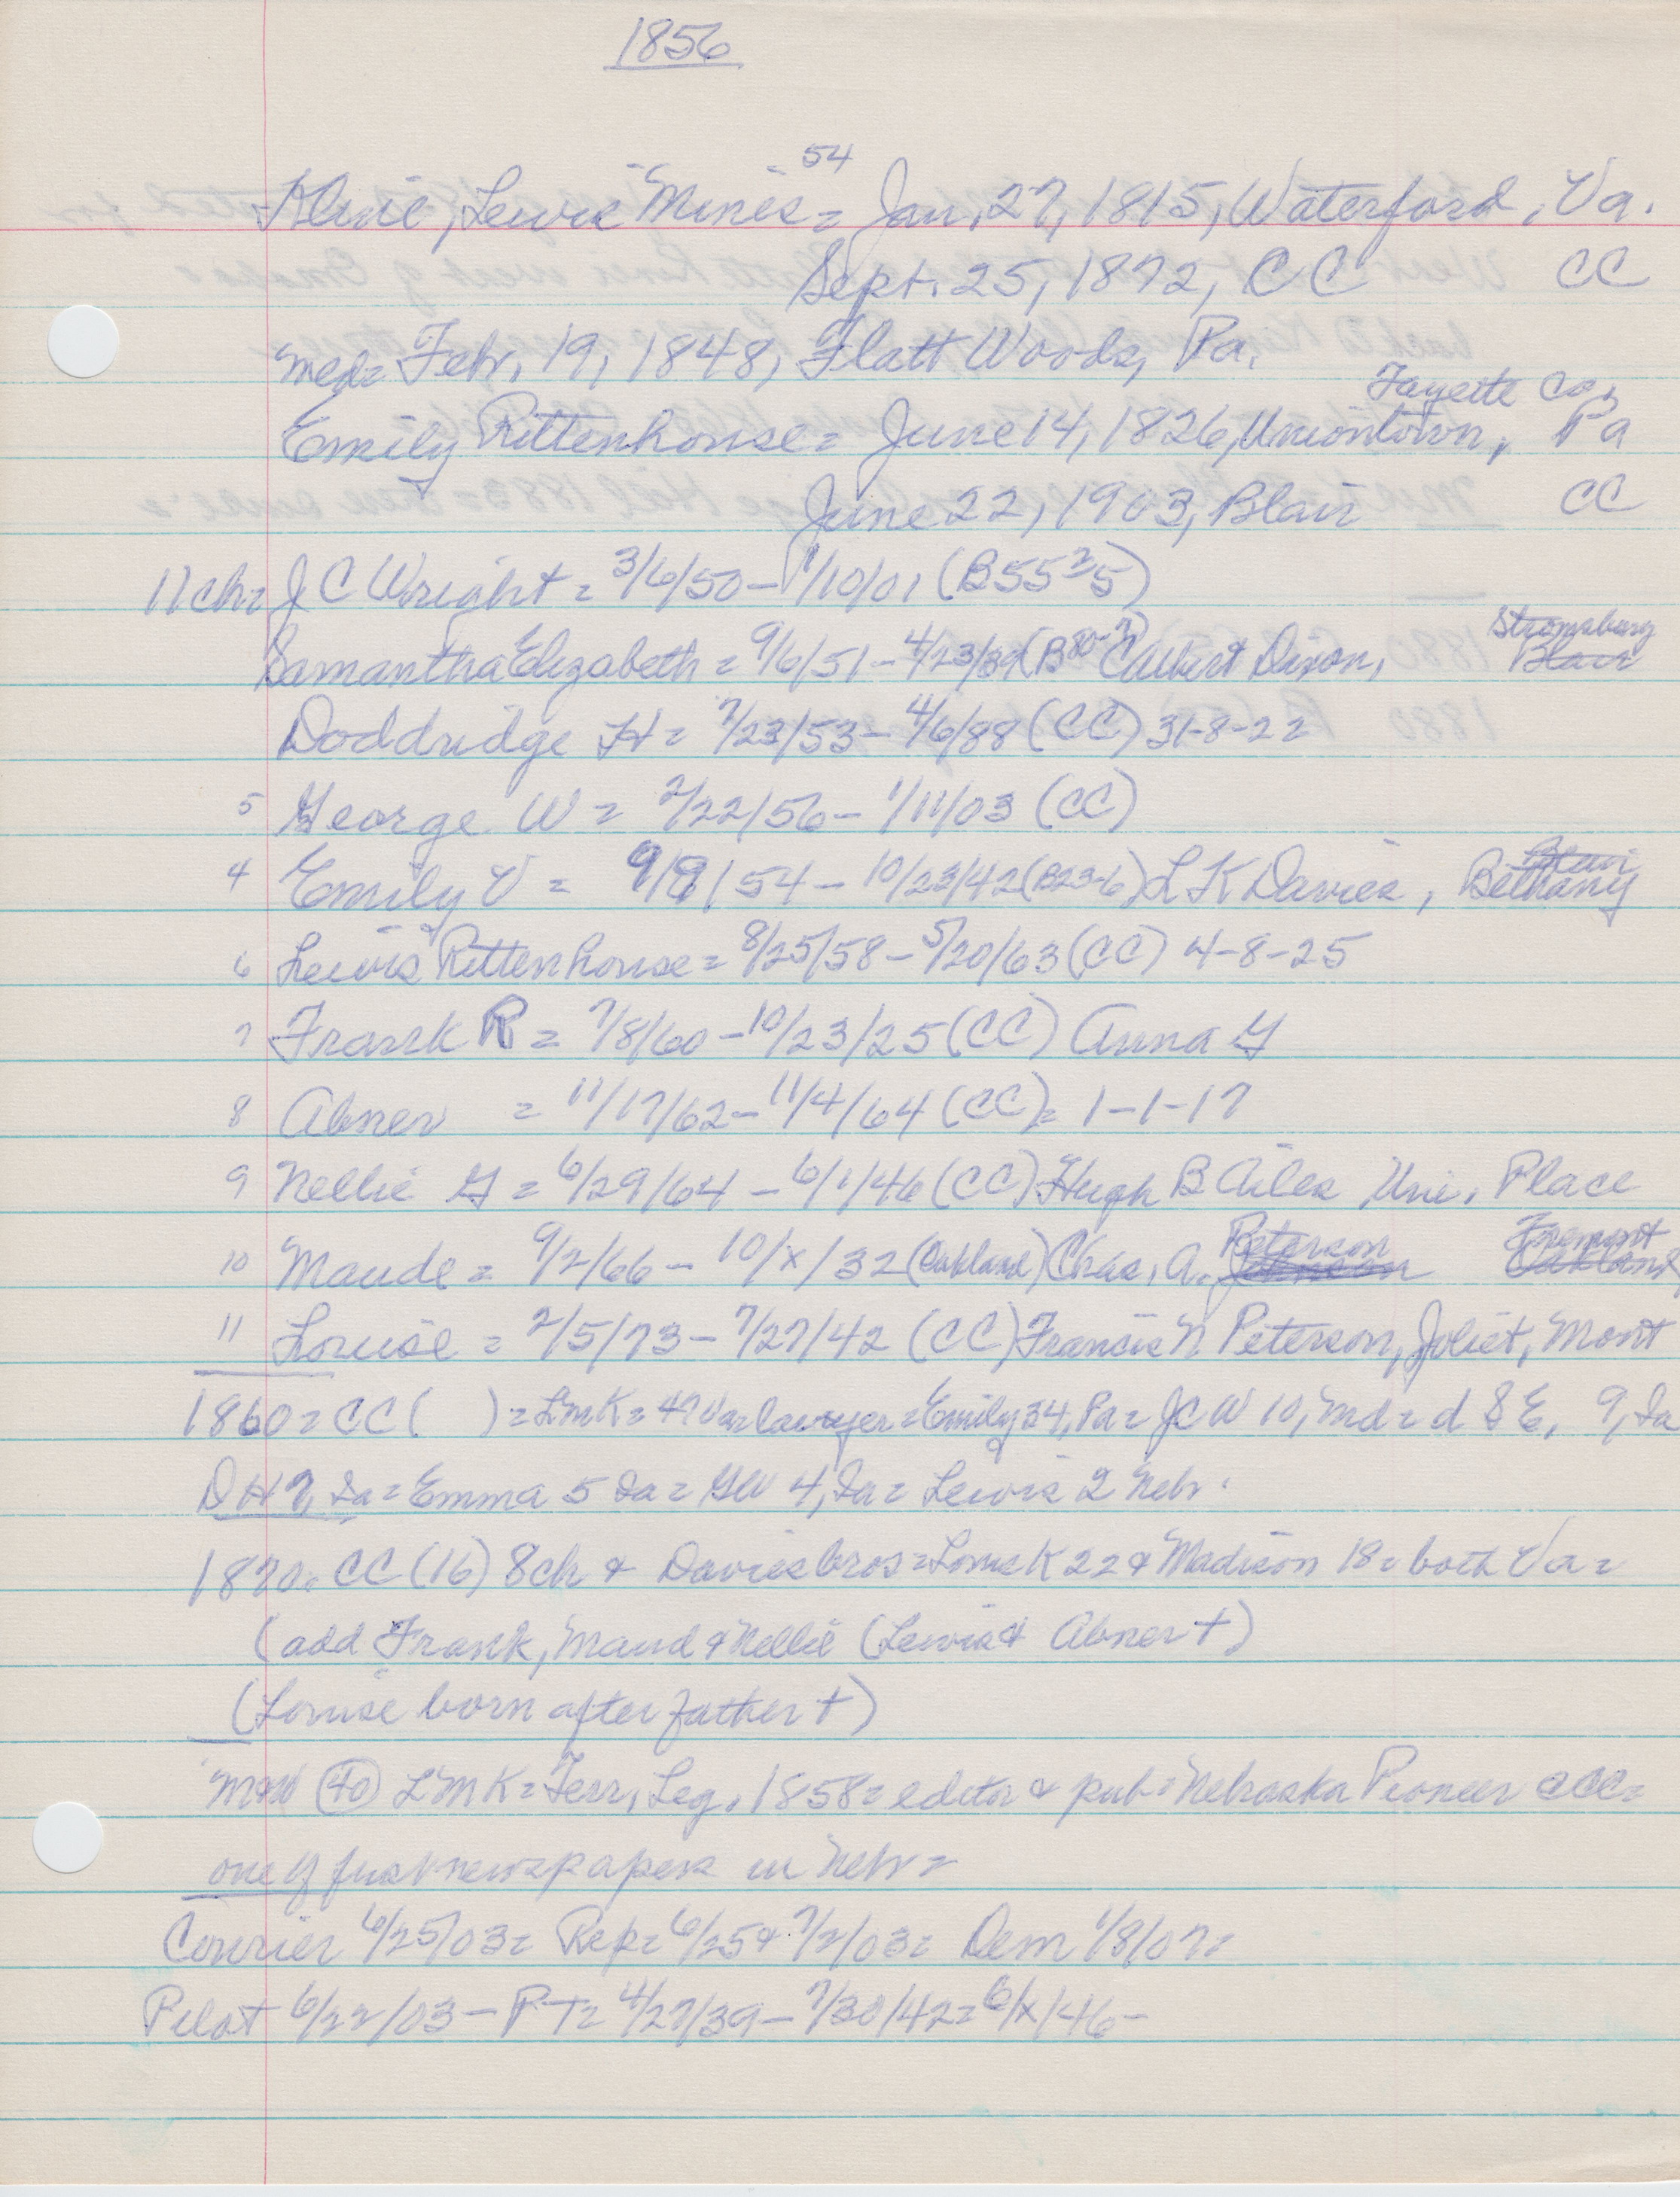 1856
54
Kline, Lewis Mines = Jan. 27, 1815, Waterford, Va.
Sept. 25, 1872, CC CC
Med = Febr. 19, 1848, Flatt Woods, Pa.
Fayette Co,
Emily Rittenhouse = June 14, 1826, Uniontown, Pa
June 22, 1903, Blair CC
11 ch = J C Wright = 3/6/50 - 1/10/01 (B55 2 5)
Stromsburg
Samantha Elizabeth = 9/6/51 - 4/23/39 (B80-7) Albert Dixon, Blair
Doddridge H = 7/23/53 - 4/6/88 (CC) 31-8-22
5 George W = 2/22/56 - 1/11/03 (CC)
Blair
4 Emily V = 9/9/54 - 10/23/42 (B23-6) L K Davies, Bethany
6 Lewis Rittenhouse = 8/25/58 - 5/20/63 (CC) 4-8-25
7 Frank R = 7/8/60 - 10/23/25 (CC) Anna G
8 Abner = 11/17/62 - 11/4/64 (CC) = 1-1-17
9 Nellie G = 6/29/64 - 6/1/46 (CC) Hugh B Ailes Uni. Place
Peterson Fremont
10 Maude = 9/2/66 - 10/x/32 (Oakland) Chas. A. Johnson Oakland
11 Louise = 2/5/73 - 7/27/42 (CC) Francis N Peterson, Joliet, Mont
1860 = CC ( ) = LMK = 47 Va = lawyer = Emily 34, Pa = JCW 10, Md = d S E, 9, Ia
DH 7, Ia = Emma 5 Ia = GW 4, Ia = Lewis 2 Nebr.
1870 = CC (16) 8 ch & Davies bros = Louis K 22 & Madison 18 = both Va =
(add Frank, Maud & Nellie (Lewis & Abner †)
(Louise born after father †)
M&W (40) LMK = Terr. Leg. 1858 = editor & pub = Nebraska Pioneer CCC =
one of first newspapers in Nebr =
Courier 6/25/03 = Rep = 6/25 & 7/2/03 = Dem 1/8/07 =
Pilot 6/22/03 - PT = 4/27/39 - 7/30/42 = 6/x/46 -